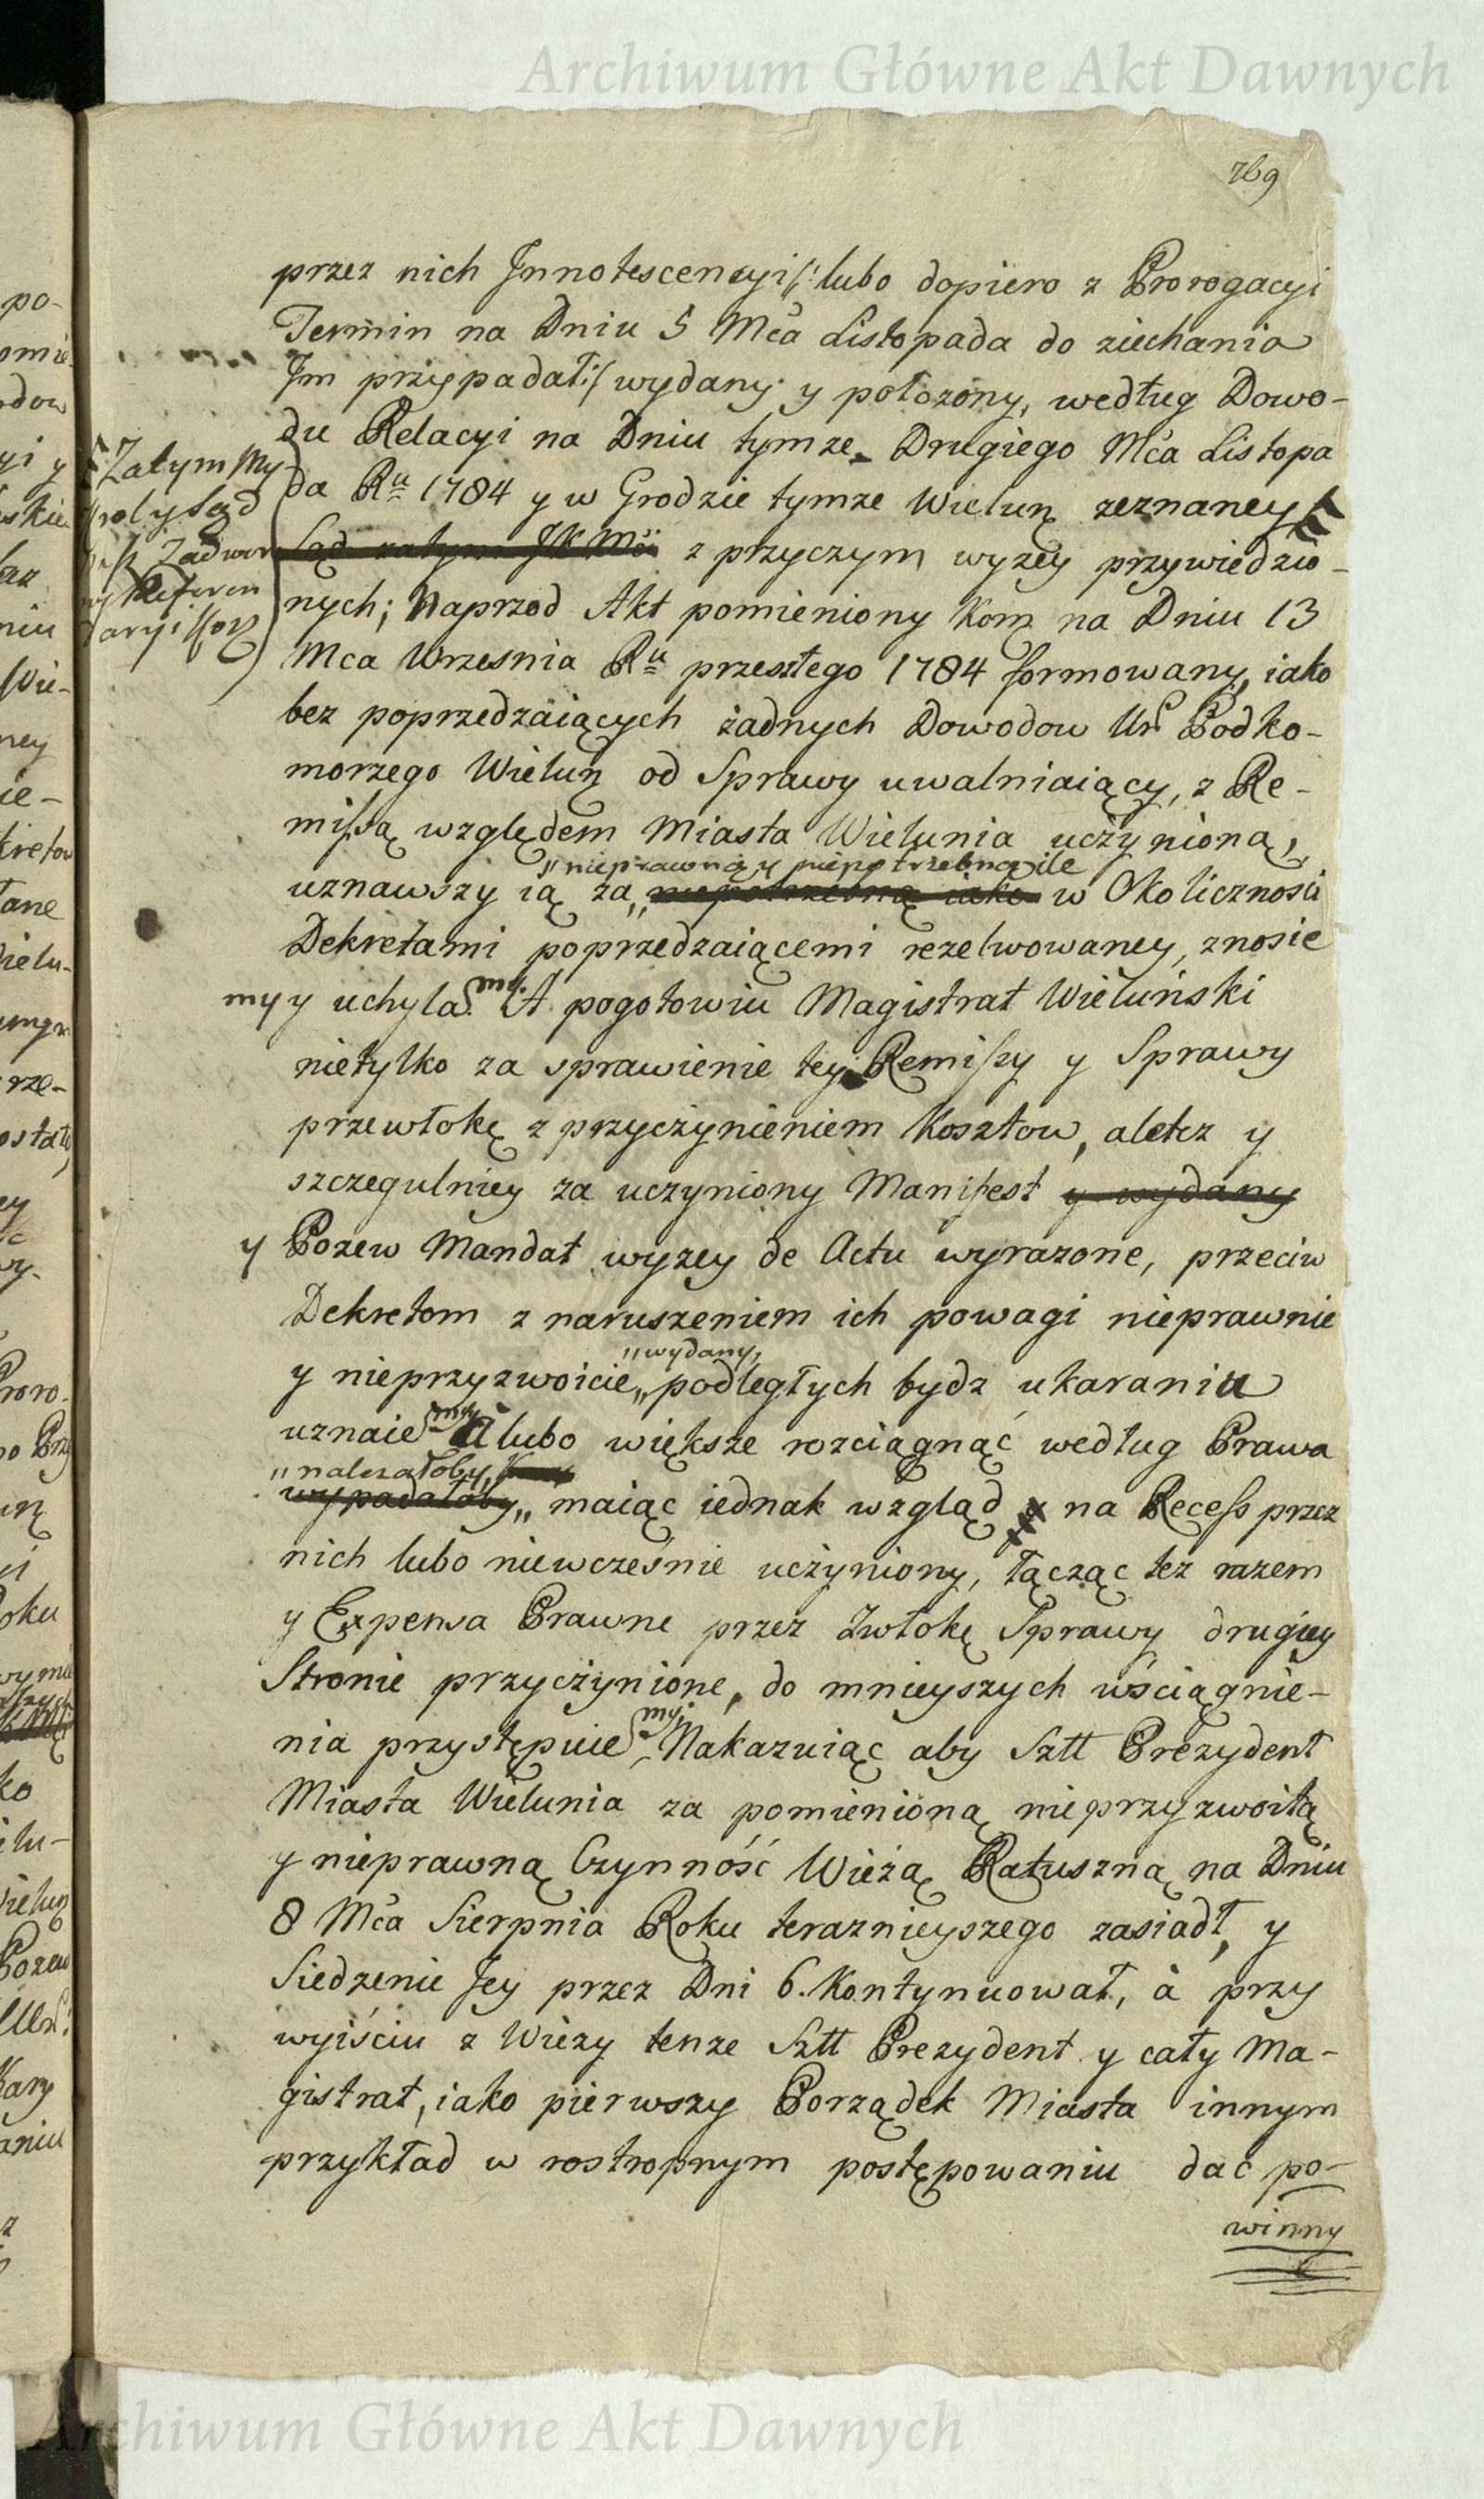 Archiwum Główne Akt Dawnych
769
przez nich Innotescencyi /: lubo dopiero z Prorogacyi
Termin na Dniu 5 Mca Listopada do ziechania
Im przypadał :/ wydany y położony, według Dowo-
du Relacyi na Dniu tymze Drugiego Mca Listopa
da Ru 1784 y w Grodzie tymze Wielun zeznaney
Zatym My
Sąd
Zadwor
Referen
daryi Kor
Sąd zatym JK Mci z przyczym wyzey przywiedzio-
nych; Naprzod Akt pomieniony Kom na Dniu 13
Mca Wrzesnia Ru przeszłego 1784 formowany, iako
bez poprzedzaiących żadnych Dowodow Ur Podko-
morzego Wielun od Sprawy uwalniaiący, z Re-
missą względem Miasta Wielunia uczynioną,
"nieprawną y niepotrzebną ile
uznawszy ią za "niepotrzebną iako w Okolicznosci
Dekretami poprzedzaiącemi rezelwowaney, znosie
my y uchyla my. A pogotowiu Magistrat Wieluński
nietylko za sprawienie tey Remissy y Sprawy
przewłokę z przyczynieniem Kosztow, aletez y
szczegulniey za uczyniony Manifest y wydany
y Pozew Mandat wyzey de Actu wyrazone, przeciw
Dekretom z naruszeniem ich powagi nieprawnie
"wydany,
y nieprzyzwoicie "podległych bydz ukarania
uznaie my A lubo większe rozciągnąć według Prawa
"nalezałoby,
wypadałoby "maiąc iednak wzgląd na Recess przez
nich lubo niewcześnie uczyniony, łącząc tez razem
y Expensa Prawne przez Zwłokę Sprawy drugiey
Stronie przyczynione, do mnieyszych uściągnie-
nia przystępuie my, Nakazuiąc aby Sztt Prezydent
Miasta Wielunia za pomienioną nieprzyzwoitą
y nieprawną Czynność Wieżą Ratuszną na Dniu
8 Mca Sierpnia Roku teraznieyszego zasiadł, y
Siedzenie Jey przez Dni 6. Kontynuował, à przy
wyiściu z Wiezy tenze Sztt Prezydent y cały Ma-
gistrat, iako pierwszy Porządek Miasta innym
przykład w rostropnym postępowaniu dac po-
winny
Archiwum Główne Akt Dawnych